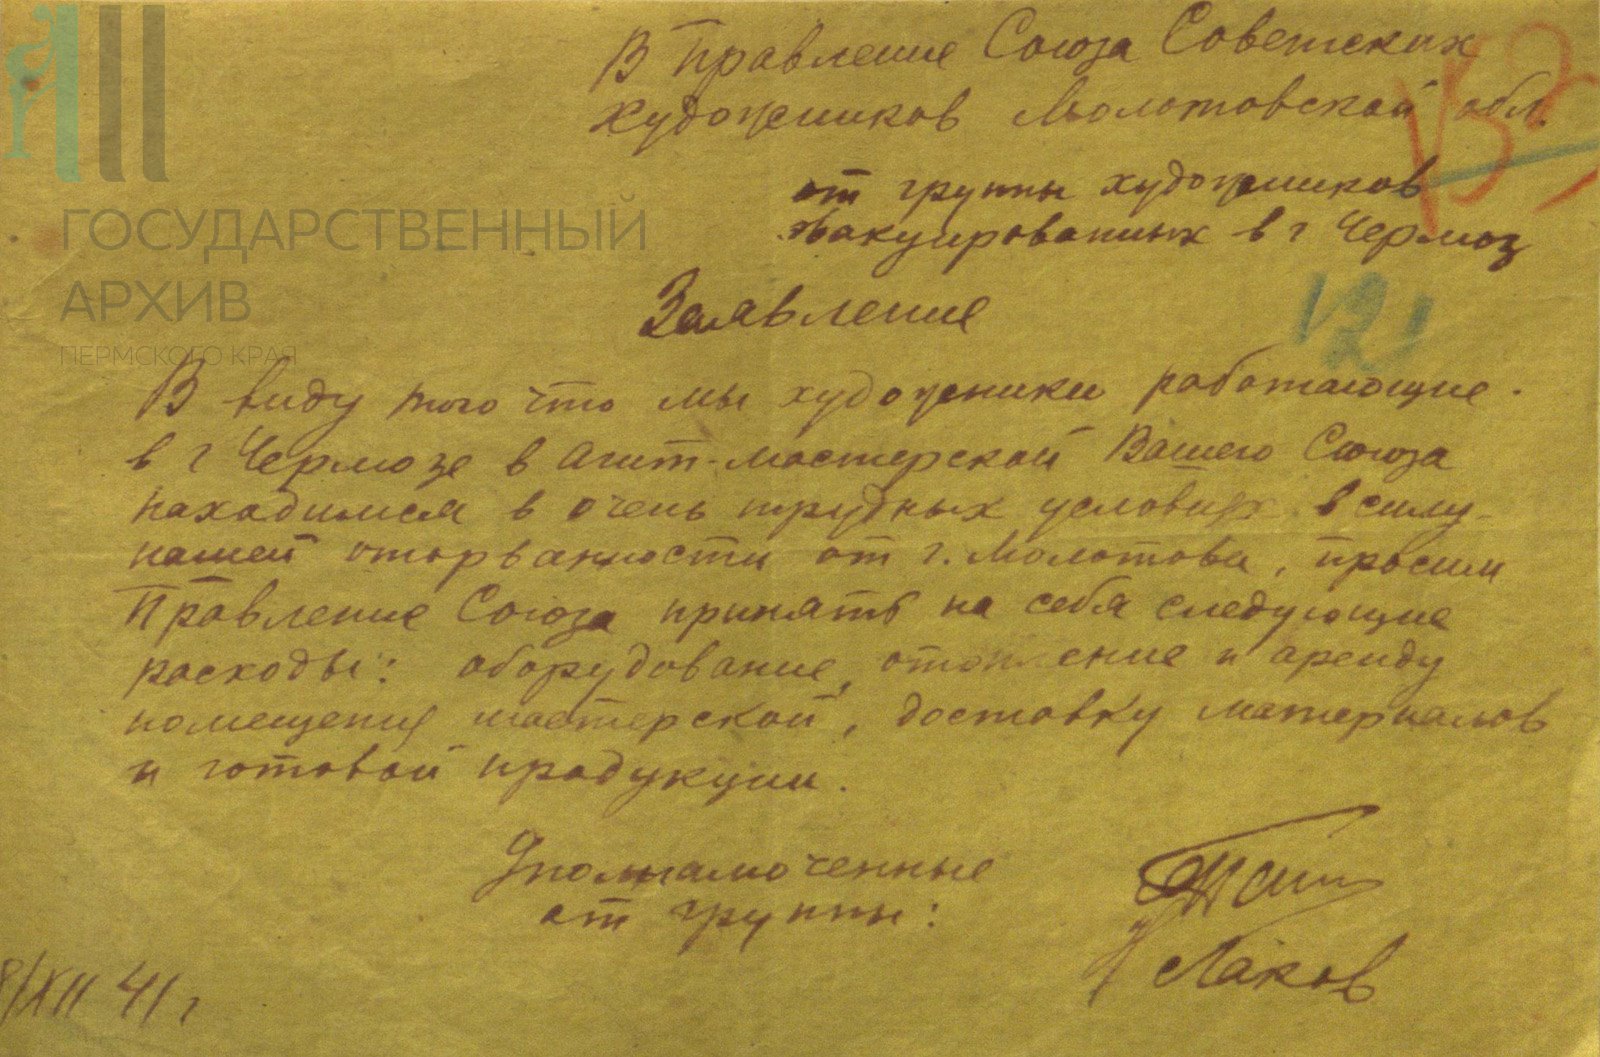 В Правление Союза Советских
художников Молотовской обл.
от группы художников
эвакуированных в г Чермоз
Заявление
В виду того что мы художники работающие
в г Чермозе в Агит-мастерской Вашего Союза
находимся в очень трудных условиях в силу
нашей оторванности от г. Молотова, просим
Правление Союза принять на себя следующие
расходы: оборудование, отопление и аренду
помещения мастерской, доставку материалов
и готовой продукции.
Уполнамоченные
от группы:
Лаков
8/XII 41 г
121
ГОСУДАРСТВЕННЫЙ
АРХИВ
ПЕРМСКОГО КРАЯ